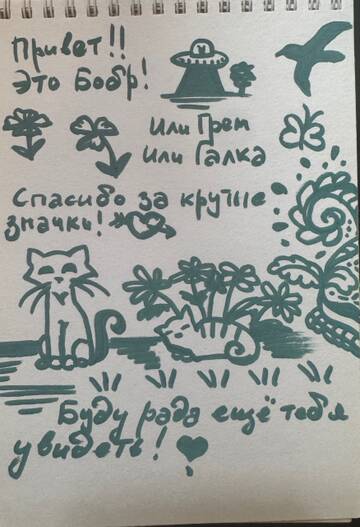 Привет!!
Это Бобр!
Или Грем
Или Галка
Спасибо за крутые
значки!
Буду рада ещё тебя
увидеть!